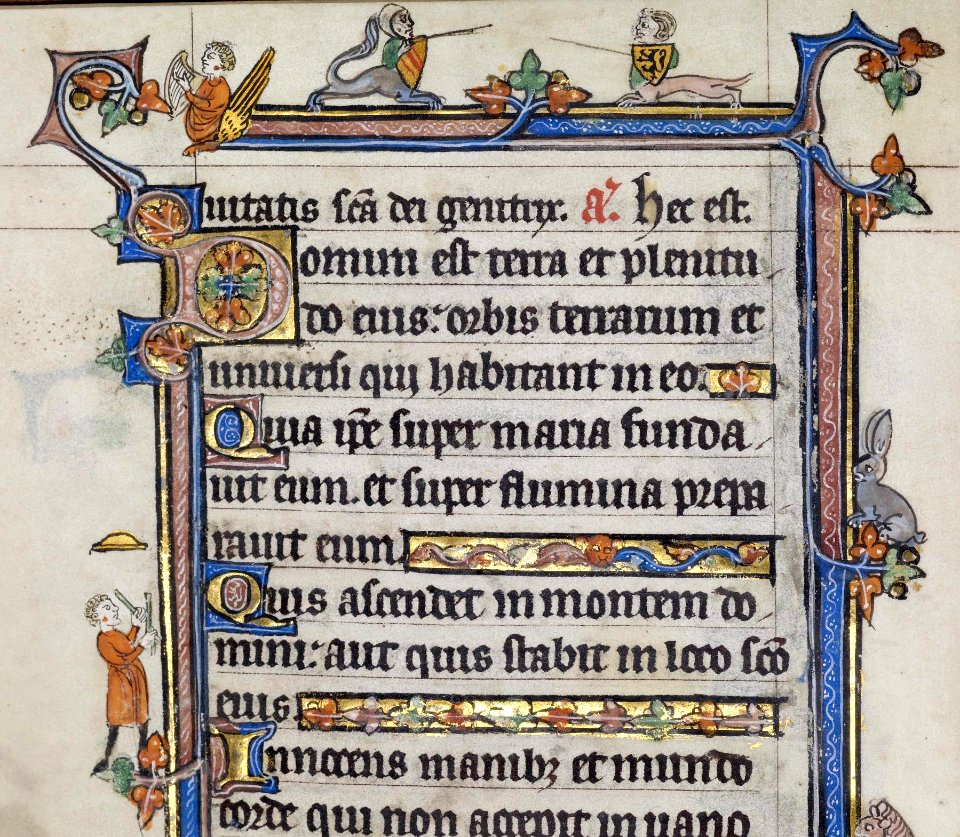 uitatis scā dei genitrix. a᷑. Hec est.
Domini est terra et plenitu
do eius: orbis terrarum et
universi qui habitant in eo.
Quia ip̄e super maria funda
uit eum. et super flumina prepa
rauit eum.
Quis ascendet in montem do
mini: aut quis stabit in loco scō
eius.
Innocens manibꝫ et mundo
corde qui non accepit in uano